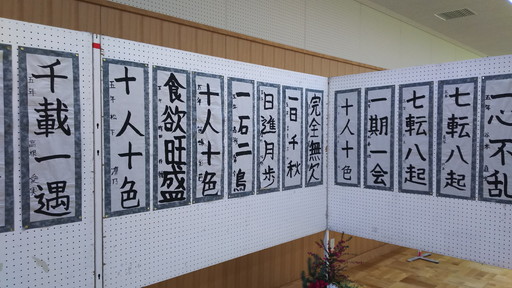 千載一遇
十人十色
食欲旺盛
十人十色
一石二鳥
日進月歩
一日千秋
完全無欠
十人十色
一期一会
七転八起
七転八起
一心不乱